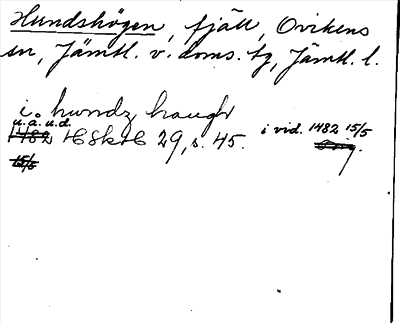 Hundshögen, fjäll, Ovikens
sn, Jämtl. v. doms. tg, Jämtl. l.
i hundz haugh
u.a.u.d.
1482 HSkH 29, s. 45. i vid. 1482 15/5
Orig.
15/5